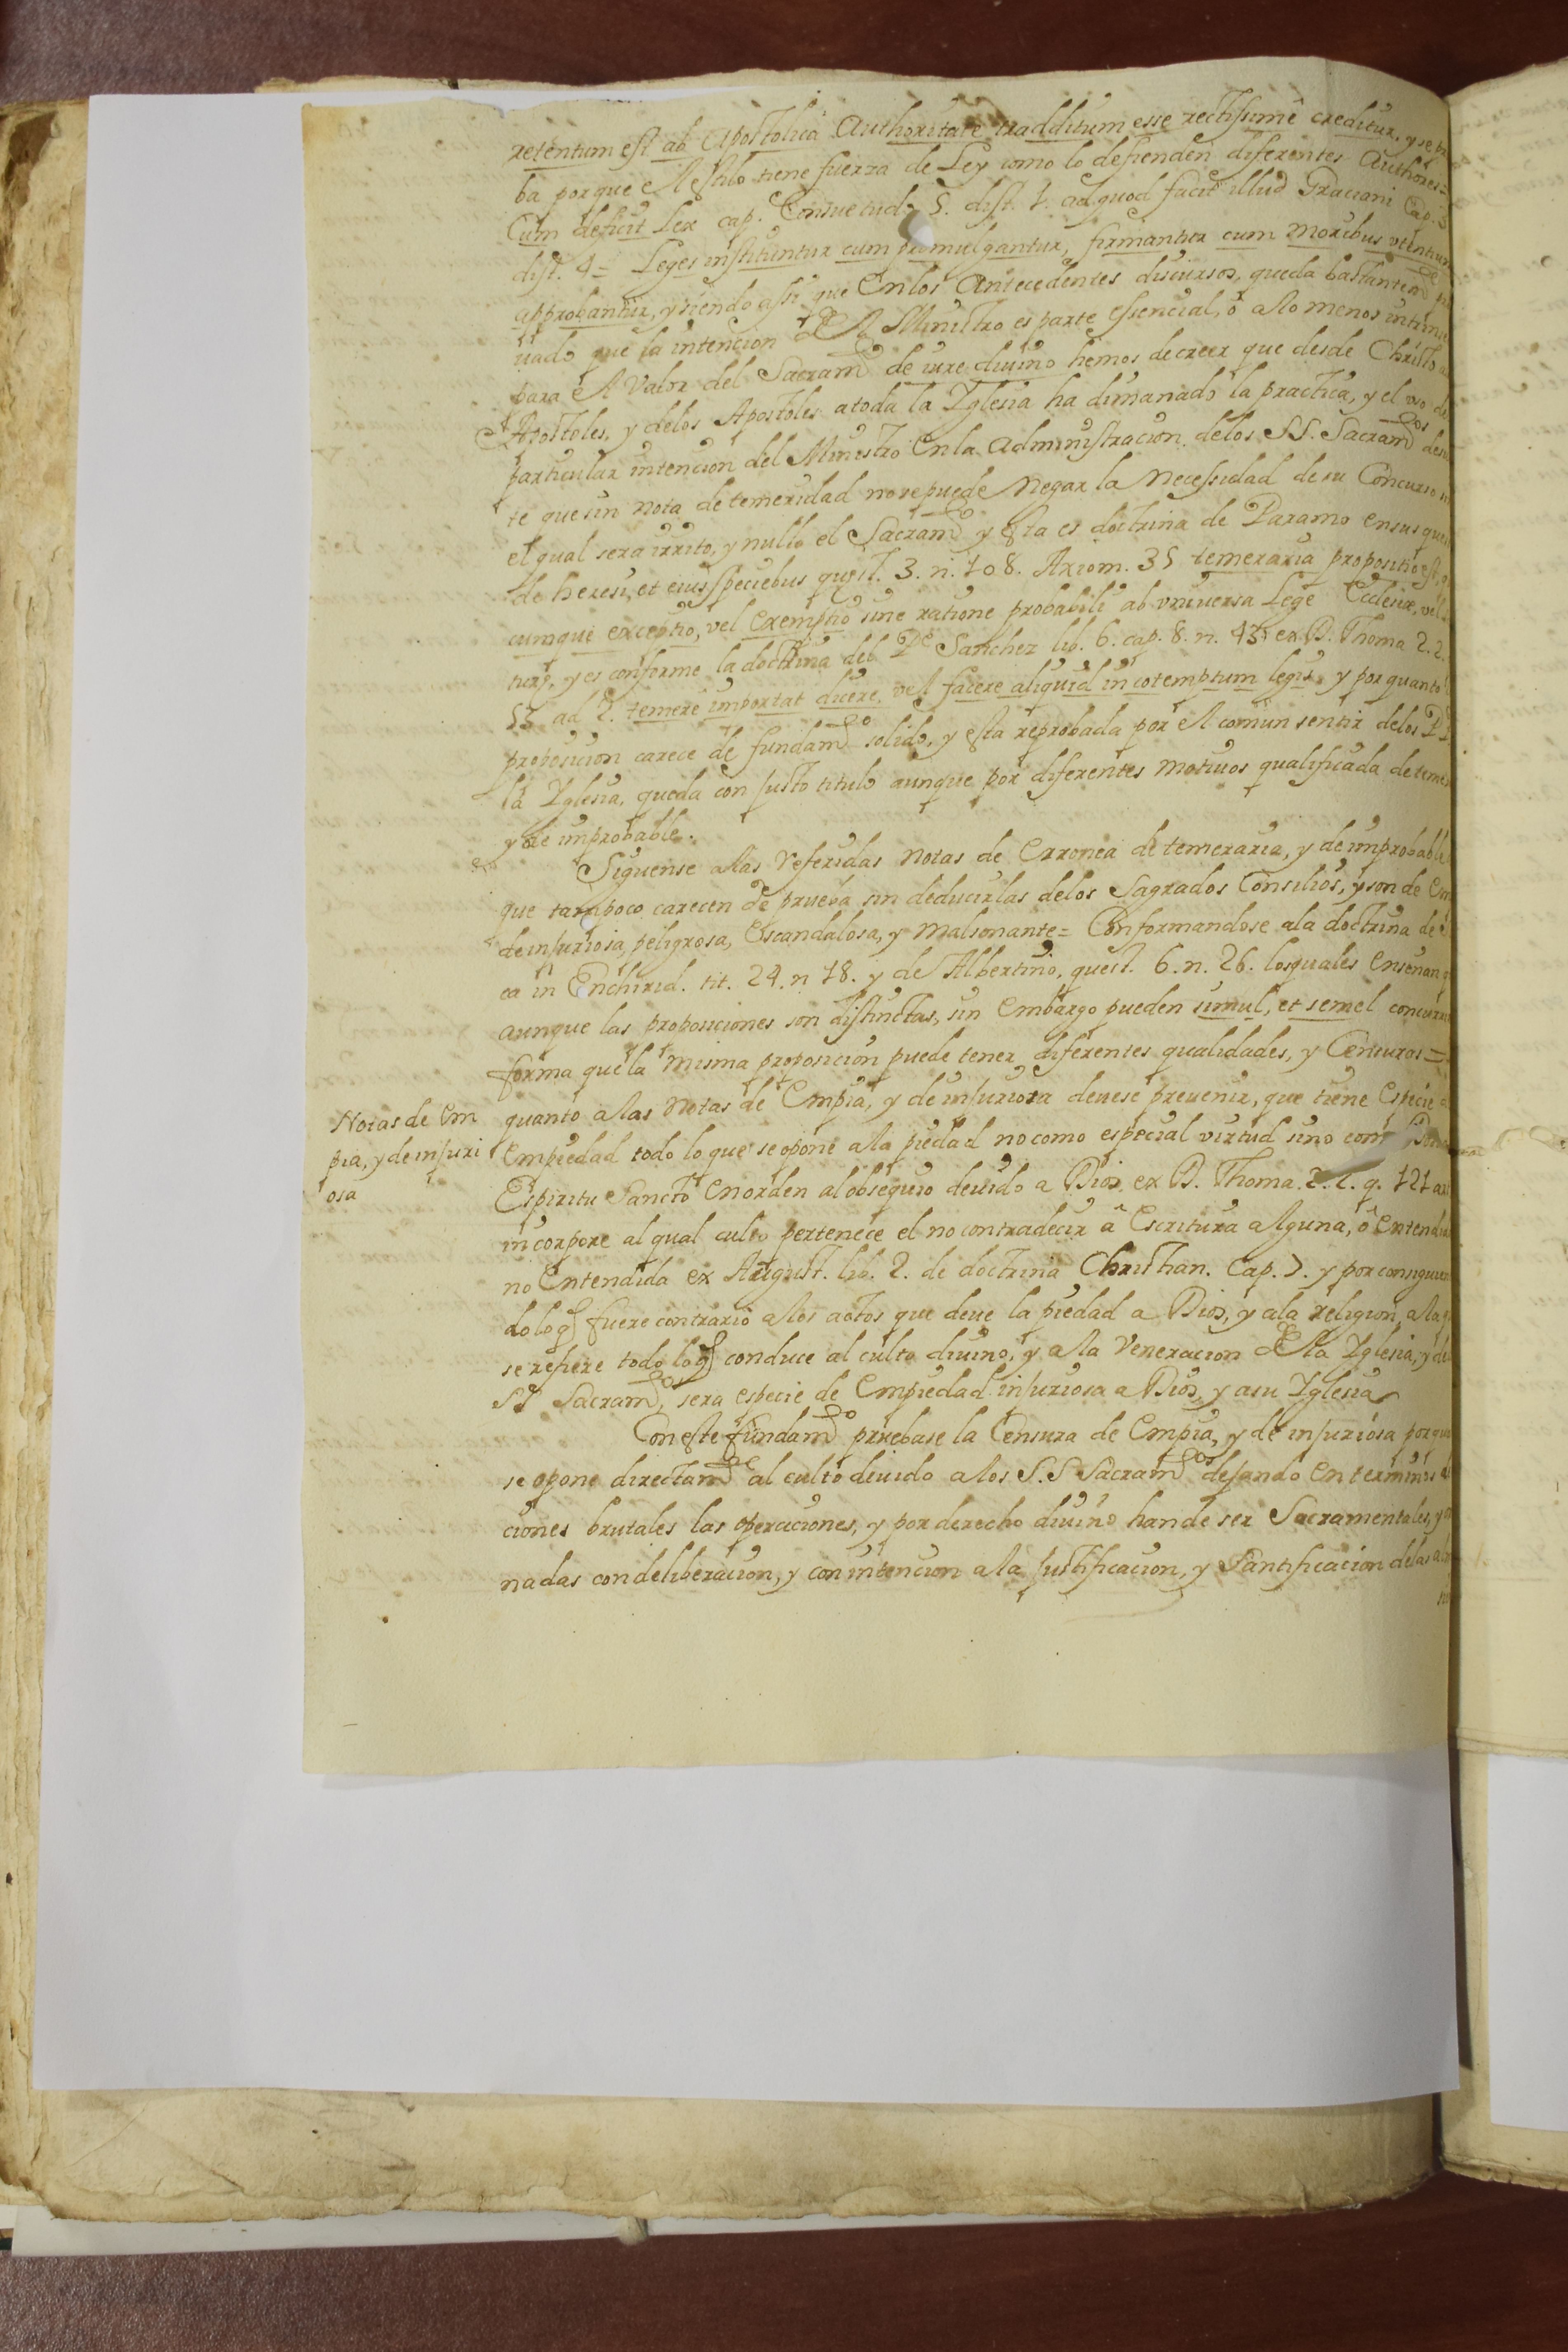 retentum est ab Apostolica Authoritate tradditum esse rectissimê creditur, y se
ba porque el estilo tiene fuerza de Ley como lo defienden diferentes Authores=
Cum deficit Lex cap. Consuetudo 5. dist. 1. ad quod facit illud Graciani Cap. 3
dist. 4= Leges instituntur cum promulgantur, firmantur cum moribus utentium
approbantur, y siendo assi que en los Antecedentes discursos, queda bastantemde
uado que la intencion del Ministro es parte essencial, ô a lo menos
para el valor del Sacramto de iure diuino hemos de creer que desde Christo a
Apostoles, y delos Apostoles a toda la Yglesia ha dimanado la practica, y el uso de
particular intencion del Ministro en la Administracion delos SS. Sacramtos
te que sin nota de temeridad no se puede negar la necessidad de su Concurso
el qual sera irrito, y nullo el Sacramto y esta es doctrina de Paramo en sus
de heresi, et eius speciebus quest. 3. n. 108. Axiom. 35 temeraria propositio est,
cumque exceptio, vel exemptio sine ratione probabili ab universa Lege Ecclesiæ, vel
y es conforme la doctrina del Pe Sanchez lib. 6. cap. 8. n. 43 ex D. Thoma 2. 2.
53 ad 2. temere importat dicere, vel facere aliquid in cotemptum legis y por quanto
proposicion carece de fundamto solido, y esta reprobada por el comun sentir delos PP
la Yglesia, queda con justo titulo aunque por diferentes motiuos qualificada de teme
y de improbable.
Siguense a las referidas notas de Erronea de temeraria, y de improbable
que tampoco carecen de prueba sin deducirlas delos Sagrados Consilios, y son de Em
de injuriosa, peligrosa, Escandalosa, y malsonante= Conformandose a la doctrina de
ca in Enchirid. tit. 24. n 18. y de Albertino, quest. 6. n. 26. los quales enseñan
aunque las proposiciones son distinctas, sin embargo pueden simul, et semel concurri
forma que la misma proposicion puede tener diferentes qualidades, y Censuras=
Notas de Em
pia, y de injuri
osa
quanto a las notas de Empia, y de injuriosa deuese preuenir, que tiene Especie
Empiedad todo lo que se opone a la piedad no como especial virtud sino como
Espiritu Sancto en orden al obsequio deuido a Dios ex D. Thoma. 2. 2. q. 121
in corpore al qual culto pertenece el no contradecir â Escritura alguna, ô entendida
no Entendida ex August. lib. 2. de doctrina Christian. Cap. 7. y por consiguien
do lo q fuere contrario a los actos que deue la piedad a Dios, y a la religion, a la
se refiere todo lo q conduce al culto diuino, y a la veneracion de la Yglesia, y
SS Sacramtos, sera especie de Empiedad injuriosa a Dios, y a su Yglesia
Con este fundamto pruebase la Censura de Empia, y de injuriosa porque
se opone directamte al culto deuido a los S.S Sacramtos dejando en terminos
ciones brutales las operaciones, y por derecho diuino han de ser Sacramentales, y
nadas con deliberacion, y con intencion a la justificacion, y Santificacion de las